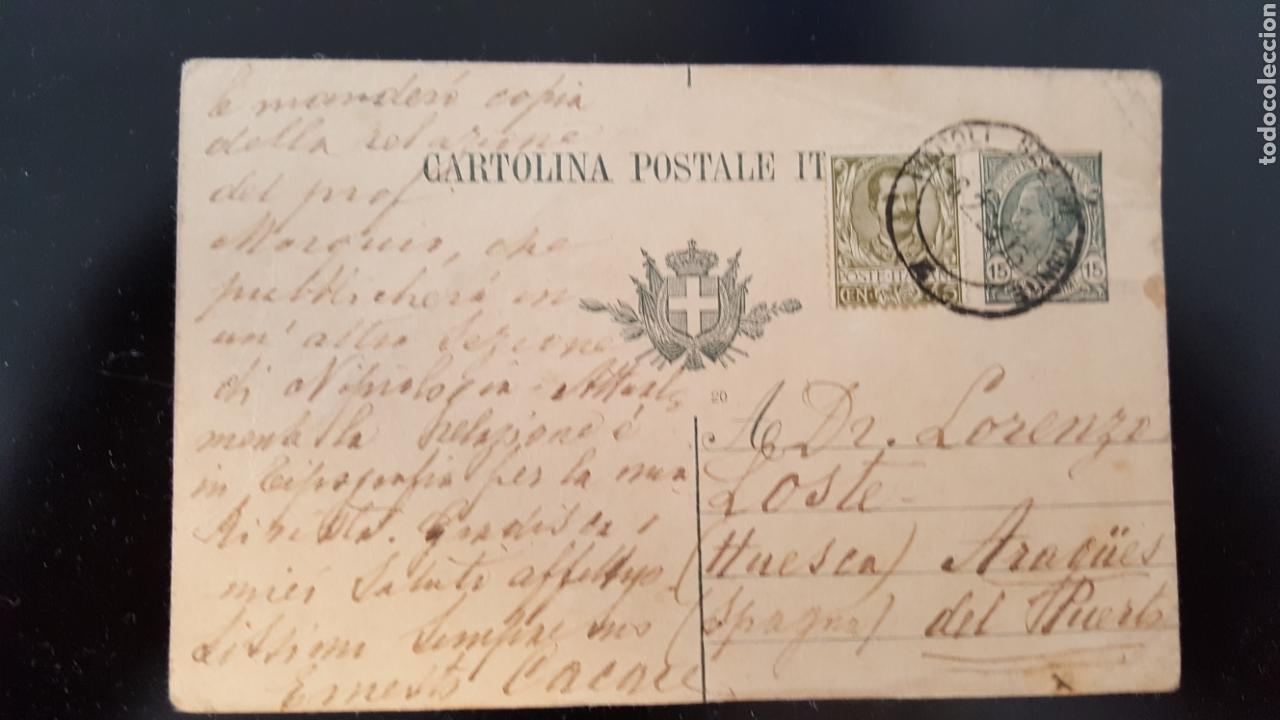 le manderó copia
della relazione
del prof.
Marquis, che
pubblicherá in
un' altra Sezione
di Nipiologia. Attual,
mente la relazione é
in Tipografia per la mia
Rivista. Gradisca i
miei Saluti affettuo,
sissimi Sempre suo
Ernesto Cacace
CARTOLINA POSTALE IT
NAPOLI
POSTE ITALIANE
CENT. 5
15 15
20
A Dr. Lorenzo
Loste
(Huesca) Aragües
(Spagna) del Puerto
todocoleccion